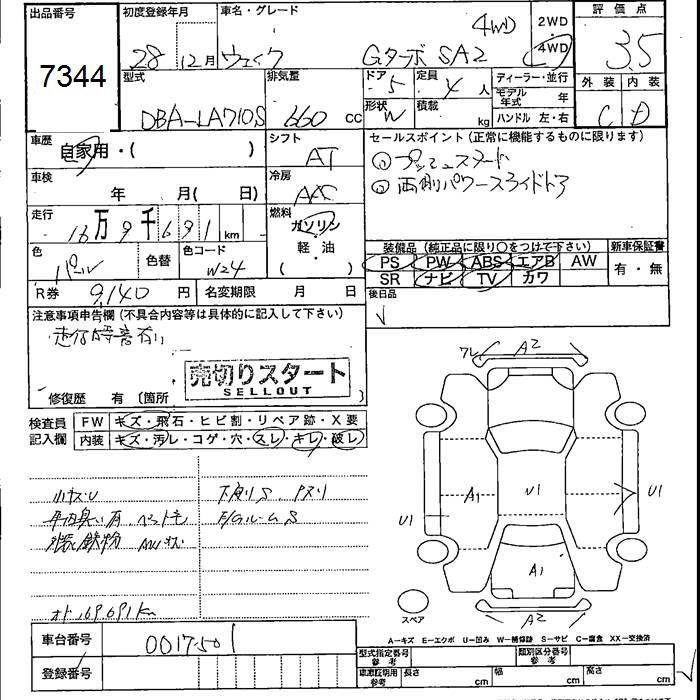 出品番号
7344
初度登録年月
28 12月
車名・グレード
ウェイク Gターボ SA2 4WD
2WD
4WD
評価点
3.5
外装 内装
C D
型式
DBA-LA710S
排気量
660 cc
ドア 5
形状 W
定員 4 人
積載 kg
ディーラー・並行
モデル年式 年
ハンドル 左・右
車歴
自家用・( )
シフト
AT
セールスポイント(正常に機能するものに限ります)
①プッシュスタート
②両側パワースライドドア
車検
年 月( 日)
冷房
AAC
走行
16万9千691km
燃料
ガソリン
軽・油
( )
色
パール
色替
色コード
W24
装備品(純正品に限り○をつけて下さい)
新車保証書
PS PW ABS エアB AW
SR ナビ TV カワ
有・無
R券 9,140 円
名変期限 月 日
後日品
注意事項申告欄(不具合内容等は具体的に記入して下さい)
走行時音有り
売切りスタート
SELLOUT
修復歴 有(箇所 )
検査員記入欄
FW キズ・飛石・ヒビ割・リペア跡・X要
内装 キズ・汚レ・コゲ・穴・スレ・キレ・破レ
小キズU
下廻りS
車内臭い有 ペット毛
F/GルームS
外装鉄粉 AWキズ
オド 169691km
ワレ A2
A1 U1 U1
U1
A1
A2
スペア
A-キズ E-エクボ U-凹み W-補修跡 S-サビ C-腐食 XX-交換済
車台番号
0017501
登録番号
型式指定番号 参考
類別区分番号 参考
車庫証明用 参考
長さ cm
幅 cm
高さ cm